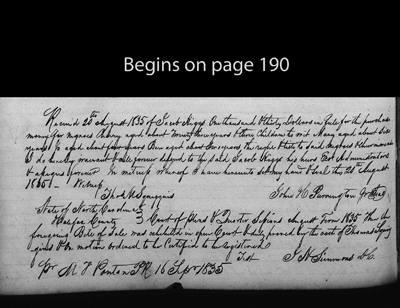 Begins on page 190
Received 20th August 1835 of Jacob Higgs One thousand & thirty Dollars in full for the purchase
money for negroes Cherry aged about Twenty three years & three Children to wit Mary aged about Six
years aged about four years Ben aged about two years, the right & title to said negroes & their increase
I do hereby warrant & will forever defend to the said Jacob Higgs his heirs Exr Administrators
& assigns forever In witness whereof I have hereunto set my hand & Seal this 20th August
1835 Witness
John H
State of North Carolina
Halifax County Court of Pleas & Quarter Sessions August Term 1835 Then the
foregoing Bill of Sale was exhibited in open Court & duly proved by the oath of Thomas
& on motion ordered to be Certified & registered
Test J H Simmons
pr M F 16 Sept 1835